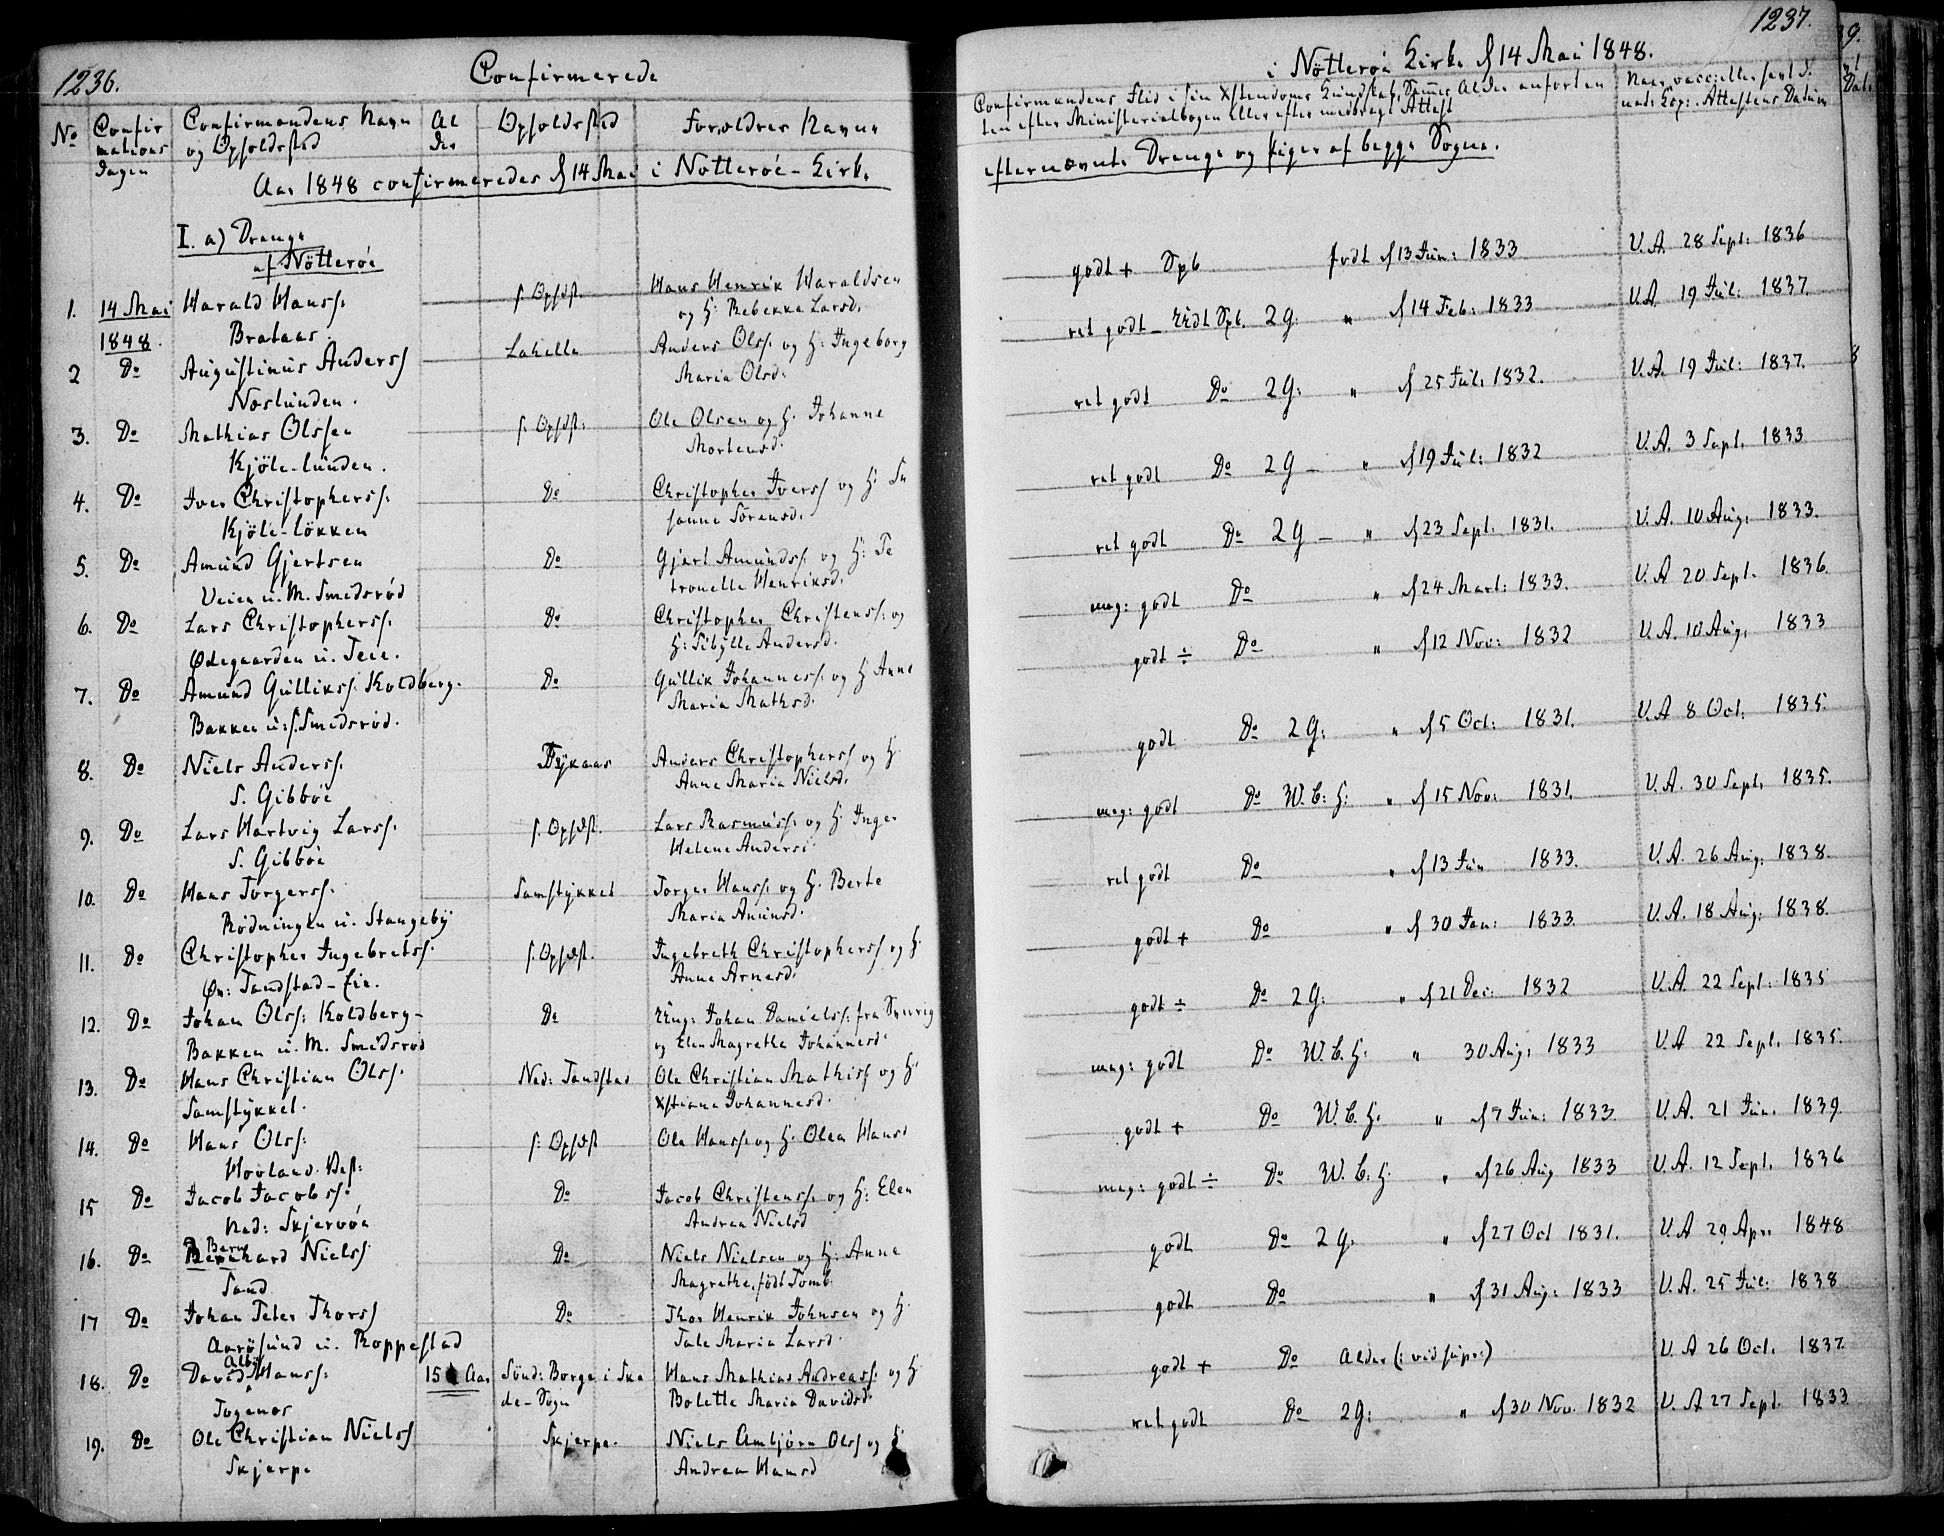 1236.
Confirmerede
No Confir mations Dagen
Confirmandens Navn og Opholdssted
Al der
Opholdssted
Forældres Navne
Aar 1848 confirmeredes d 14 Mai i Nøtterøe-Kirke
I. a) Drenge
af Nötteröe
1. 14 Mai Harald Hanss: f. Opsdst. Hans Henrik Haraldsen
1848. Brataas og H: Rebekka Larsd.
2 Do Augustinus Anderss Lahelle Anders Olss. og H: Ingeborg
Noslunden. Maria Olsd.
3. Do Mathias Olssen f. Opsdst: Ole Olsen og H. Johanne
Kjöle-lunden. Mortensd.
4. Do Iver Christopherss: Do Christopher Iverss og H: Su
Kjöle-lökken sanne Sörensd.
5. Do Amund Gjertsen Do Gjert Amundss. og H: Pe
Veien u. M. Smedsröd tronelle Henriksd.
6. Do Lars Christopherss. Do Christopher Christenss: og
Ødegaarden u. Teie. H: Sibylle Andersd.
7. Do Amund Gullikss: Koldberg- Do Gullik Johanness. og H Anne
Bakken u: S. Smedsröd. Maria Mathsd.
8. Do Niels Anderss. Anders Christopherss og H.
S. Gibböe Anne Maria Nielsd.
9. Do Lars Hartvig Larss. f. Opsdst. Lars Rasmuss. og H. Inger
S. Gibböe Helene Andersd
10. Do Hans Torgerss. Samstykket Torger Hanss: og H. Berte
Rödningen u. Stangeby Maria Amunsd.
11. Do Christopher Ingebretss: f. Opsdst. Ingebreth Christopherss og H.
Øv: Tandstad-Eie. Anne Arnesd.
12. Do Johan Olss: Koldberg- Do Ung: Johan Danielss: fra Sverrig
Bakken u. M. Smedsröd og Elen Magrethe Johannesd.
13. Do Hans Christian Olss. Ned: Tandstad Ole Christian Mathiss og H.
Samstykket. Xstiane Johannesd.
14. Do Hans Olss: f. Opsdst Ole Hanss. og H. Olea Hansd
Hovland. Vest:
15 Do Jacob Jacobss: Do Jacob Christenss. og H: Elen
Ned: Skjervöe Andrea Nielsd
16. Do Bernhard Nielss Do Niels Nielsen og H: Anne
Sand Magrethe, födt Tomb
17 Do Johan Peter Thorss Do Thor Henrik Johnsen og H.
Aarösund u. Roppestad Tale Maria Larsd.
18. Do David Hanss: 15 Aar Sönd: Borge i Ske Hans Mathias Andreass: og H
Togenes de-Sogn Bolette Maria Davidsd.
19. Do Ole Christian Nielss Skjerpe. Niels Ambjörn Olss og H
Skjerpe Andrea Hansd
1237.
i Nötteröe Kirke d 14 Mai 1848.
Confirmandens Flid i sin Xstendoms Kundskab, Sammes Alder anfört en
ten efter Ministerialbogen eller efter medbragt Attest
Naar vaccineret samt
Attestens Datum
efternævnte Drenge og Piger af begge Sogne.
godt + Opf födt d 13 Jun: 1833 V. A. 28 Sept: 1836
ret godt 2G: " d 14 Feb: 1833 V.A 19 Jul: 1837
ret godt Do 2G: " d 25 Jul: 1832. V. A. 19 Jul: 1837.
ret godt Do 2G - " d 19 Jul: 1832 V. A. 3 Sept. 1833
ret godt Do 2G - " d 23 Sept. 1831. V. A. 10 Aug: 1833.
meg: godt Do " d 24 Mart: 1833. V. A 20 Sept. 1836.
godt ÷ Do " d 12 Nov: 1832 V. A. 10 Aug. 1833
godt Do 2G: " d 5 Oct: 1831. V. A 8 Oct. 1835.
meg: godt Do " d 15 Nov: 1831. V. A. 30 Sept. 1835.
ret godt Do " d 13 Jun 1833. V. A. 26 Aug: 1838.
godt + Do " d 30 Jan: 1833. V. A. 18 Aug: 1838.
godt ÷ Do 2G: " d 21 Dec: 1832 V. A 22 Sept: 1835
meg: godt Do " 30 Aug. 1833 V. A 22 Sept. 1835.
godt + Do " d 7 Jun: 1833. V. A. 21 Jun. 1839.
meg: godt ÷ Do " d 26 Aug 1833 V. A. 12 Sept. 1836
godt Do 2G. " d 27 Oct 1831. V. A 29 Apr. 1848
godt Do " d 31 Aug: 1833 V. A. 25 Jul: 1838
godt + Do Alder (: vid supr:) V. A 26 Oct. 1837
ret godt Do 2G: " d 30 Nov. 1832 V. A 27 Sept. 1833